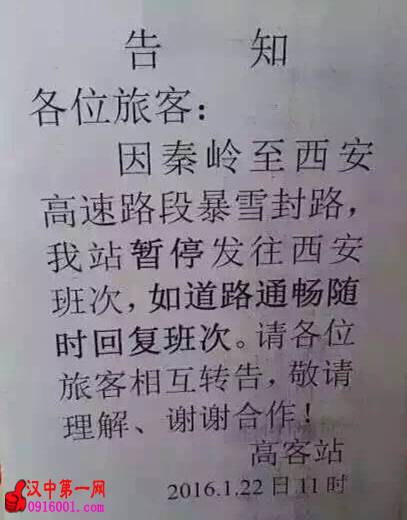 告 知
各位旅客：
因秦岭至西安
高速路段暴雪封路，
我站暂停发往西安
班次，如道路通畅随
时回复班次。请各位
旅客相互转告，敬请
理解、谢谢合作！
高客站
2016.1.22日11时
汉中第一网
0916001.com